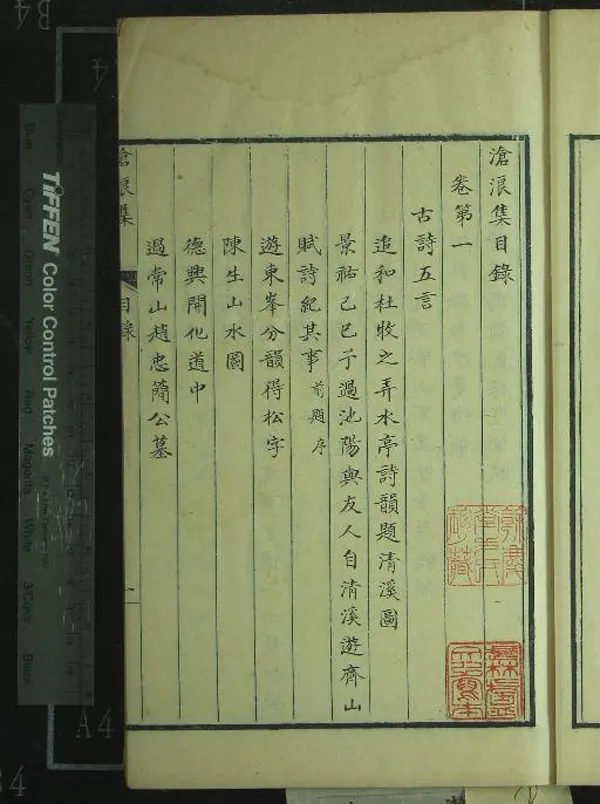 滄浪集目錄
卷第一
古詩五言
追和杜牧之弄水亭詩韻題清溪圖
景祐己巳予過池陽與友人自清溪遊齊山
賦詩紀其事前題序
遊東峯分韻得松字
陳生山水圖
德興開化道中
過常山趙忠簡公墓
滄浪集
目錄
一
TIFFEN Color Control Patches
Blue
Cyan
Green
Yellow
Red
Magenta
White
3/Color
Black
A4
B4